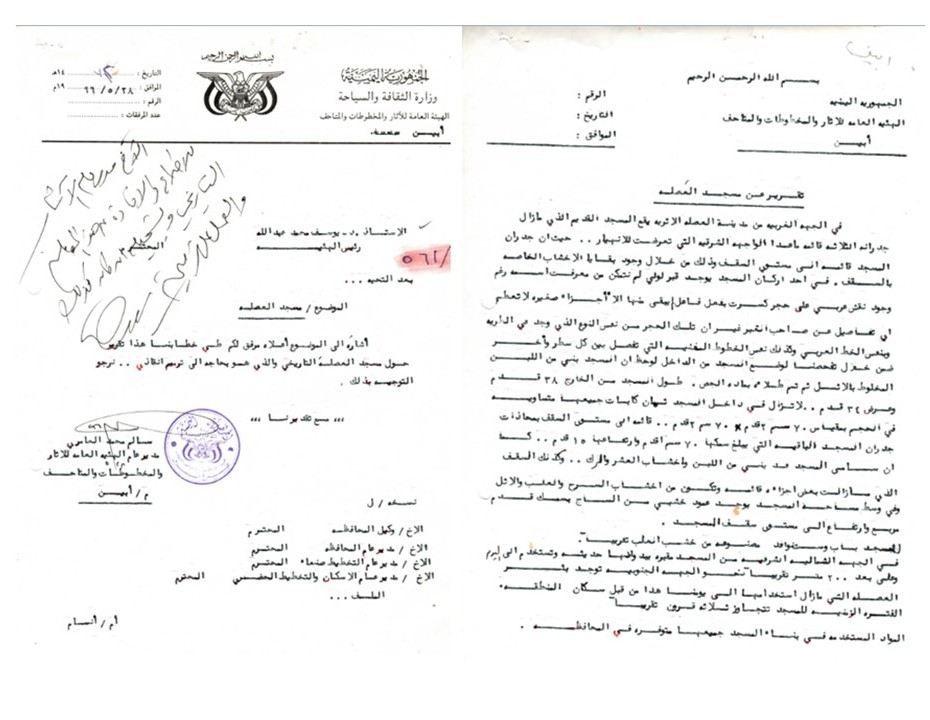 بسم الله الرحمن الرحيم
الجمهورية اليمنية
وزارة الثقافة والسياحة
الهيئة العامة للآثار والمخطوطات والمتاحف
أبين
التاريخ : ١٤هـ
الموافق : ٩٦/٥/٢٨ ١٩م
الرقم :
عدد المرفقات :
الاستاذ د. يوسف محمد عبدالله المحترم
رئيس الهيئه
بعد التحيه ...
الموضوع / مسجد العصله
أشاره الى الموضوع أعلاه مرفق لكم طي خطابنا هذا تقرير
حول مسجد العصلة التاريخي والذي هو بحاجه الى ترميم انقاذي .. نرجو
التوجيه بذلك .
،،، مع تقديرنا ،،،
سالم محمد العامري
مدير عام الهيئه العامه للاثار
والمخطوطات والمتاحف
م/ أبين
نسخه / ل
الاخ / وكيل المحافظه المحترم
الاخ / مدير عام المحافظه المحترم
الاخ / مدير عام التخطيط صنعاء المحترم
الاخ / مدير عام الاسكان والتخطيط الحضري المحترم
الملف ...
أم / أنسام
بسم الله الرحمن الرحيم
الجمهوريه اليمنيه
الهيئه العامه للاثار والمخطوطات والمتاحف
أبين
الرقم :
التاريخ :
الموافق :
تقرير عن مسجد العصله
في الجهه الغربيه من مدينة العصله الاثريه يقع المسجد القديم الذي مازال
جدرانه الثلاثه قائمه ماعدا الواجهه الشرقيه التي تعرضت للانهيار .. حيث ان جدران
المسجد قائمه الى مستوى السقف وذلك من خلال وجود بقايا الاخشاب الخاصه
بالسقف . في احد اركان المسجد يوجد قبر لولي لم نتمكن من معرفت اسمه رغم
وجود نقش عربي على حجر كسرت بفعل فاعل يبقى منها الا أجزاء صغيره لا تعطي
اي تفاصيل عن صاحب القبر غير ان تلك الحجر من نفس النوع الذي وجد في
وبنفس الخط العربي وكذلك نفس الخطوط التي تفصل بين كل سطر وأخر
من خلال تفحصنا لوضع المسجد من الداخل لوحظ ان المسجد بني من اللبن
المخلوط بالاثل ثم تم طلاءه بماده الجص . طول المسجد من الخارج ٣٨ قدم
وعرض ٣٤ قدم .. لاتزال في داخل المسجد ثمان جميعها متساويه
في الحجم بمقياس ٧٠ سم ٢ قدم × ٧٠ سم ٢ قدم .. قائمه الى مستوى السقف بمحاذات
جدران المسجد الباقيه التي يبلغ سمكها ٧٠ سم اقدم وارتفاعها ١٥ قدم .. كما
ان المسجد قد بني من اللبن واخشاب العشر .. وكذلك السقف
الذي مازالت بعض اجزاءه قائمه وتتكون من اخشاب السرح والعلب والاثل
وفي وسط مساحه المسجد يوجد عمود خشبي من الساج بسمك قدم
مربع وارتفاع الى مستوى سقف المسجد .
للمسجد باب مصنوعه من خشب العلب تقريبا .
في الجهه الشماليه الشرقيه من المسجد مقبره يبدو انها حديثه وتستخدم الى اليوم
وعلى بعد ٢٠٠ متر تقريبا نحو الجهه الجنوبيه توجد بئر
العصله التي مازال استخدامها الى يومنا هذا من قبل سكان المنطقه .
الفتره الزمنيه للمسجد تتجاوز ثلاثه قرون تقريبا
المواد المستخدمه في بناء المسجد جميعها متوفره في المحافظه .